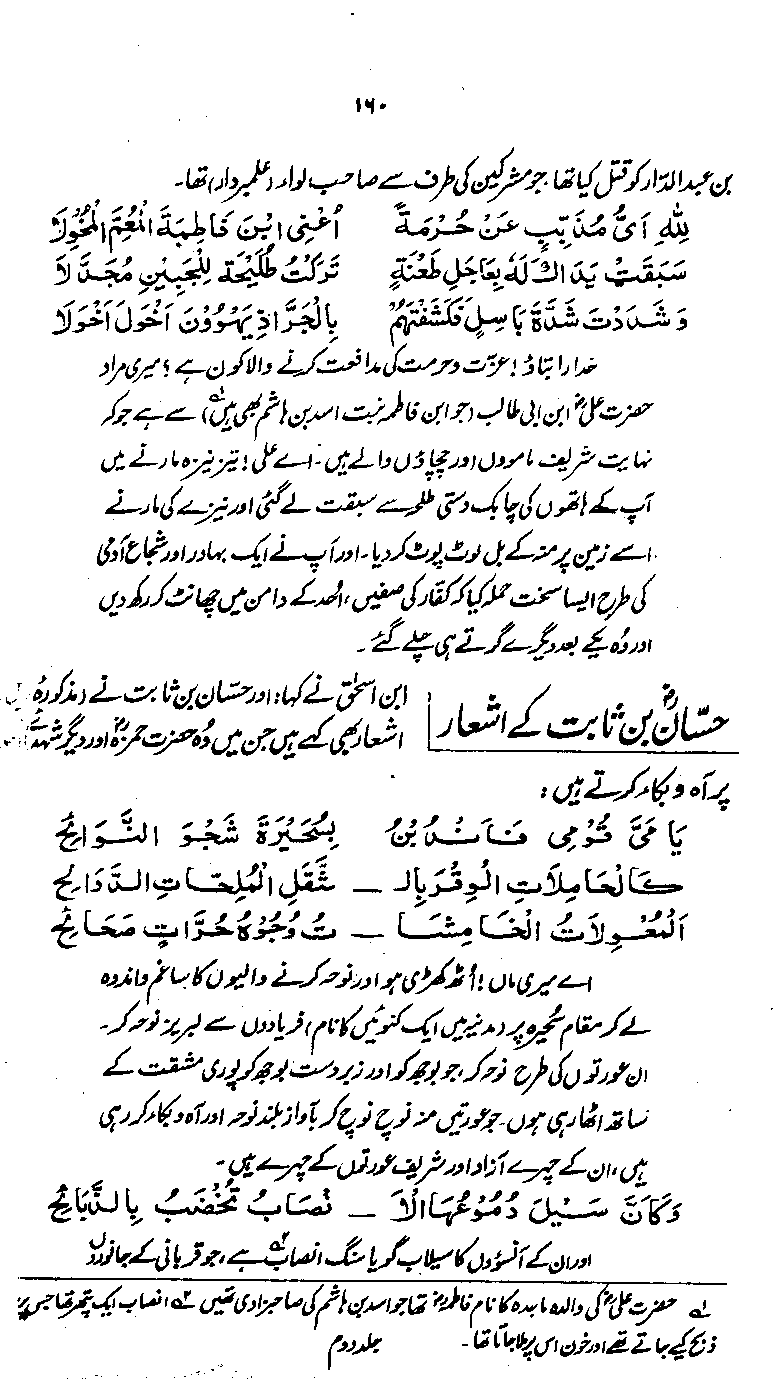 ۱۶۰
بن عبدالدّار کو قتل کیا تھا جو مشرکین کی طرف سے صاحب لواء (علمبردار) تھا۔
لِلّٰهِ اَیُّ مُذَبِّبٍ عَنْ حُرْمَةٍ اَعْنِی ابْنَ فَاطِمَةَ الْمُعِمَّ الْمُخْوِلَا
سَبَقَتْ يَدَاكَ لَهٗ بِعَاجِلِ طَعْنَةٍ تَرَكْتَ طُلَيْحَةَ لِلْجَبِيْنِ مُجَدَّلَا
وَشَدَدْتَ شَدَّةَ بَاسِلٍ فَكَشَفْتَهُمْ بِالْجَرِّ اِذْ يَهْوُوْنَ اَخْوَلَ اَخْوَلَا
خدارا بتاؤ! عزت و حرمت کی مدافعت کرنے والا کون ہے؟ میری مراد
حضرت علیؓ ابن ابی طالب (جو ابن فاطمہ بنت اسد بن ہاشم بھی ہیں)۱ سے ہے جو کہ
نہایت شریف ماموں اور چچاؤں والے ہیں۔ اے علی! تیز نیزہ مارنے میں
آپ کے ہاتھوں کی چابک دستی طلحہ سے سبقت لے گئی اور نیزے کی مار نے
اسے زمین پر منہ کے بل لوٹ پوٹ کر دیا۔ اور آپ نے ایک بہادر اور شجاع آدمی
کی طرح ایسا سخت حملہ کیا کہ کفار کی صفیں، اُحد کے دامن میں چھانٹ کر رکھ دیں
اور وُہ یکے بعد دیگرے گرتے ہی چلے گئے۔
حسّانؓ بن ثابت کے اشعار
ابن اسحٰق نے کہا: اور حسّان بن ثابت نے (مذکورہ
اشعار بھی کہے ہیں جن میں وُہ حضرت حمزہؓ اور دیگر شہدائے
پر آہ و بکاء کرتے ہیں:
يَا مَیَّ قُوْمِی فَانْدُبْنَ بِسُحَيْرَةَ شَجْوَ النَّوَائِحْ
كَالْحَامِلَاتِ الْوِقْرَ بِالـ ـ ثِّقَلِ الْمُلِحَّاتِ الدَّوَالِحْ
اَلْمُعْوِلَاتُ الْخَامِشَا ـ تُ وُجُوْهَ حُرَّاتٍ صَحَائِحْ
اے میری ماں! اُٹھ کھڑی ہو اور نوحہ کرنے والیوں کا سا غم و اندوہ
لے کر مقام سُحیرہ پر (مدینہ میں ایک کنوئیں کا نام) فریادوں سے لبریز نوحہ کر۔
ان عورتوں کی طرح نوحہ کر، جو بوجھ کو اور زبردست بوجھ کو پوری مشقت کے
ساتھ اٹھا رہی ہوں۔ جو عورتیں منہ نوچ نوچ کر بآواز بلند نوحہ اور آہ و بکاء کر رہی
ہیں، ان کے چہرے آزاد اور شریف عورتوں کے چہرے ہیں۔
وَكَاَنَّ سَيْلَ دُمُوْعِهَا الْاَ ـ نْصَابُ تُخْضَبُ بِالذَّبَائِحْ
اور ان کے آنسوؤں کا سیلاب گویا سنگ انصاب۲ ہے، جو قربانی کے جانوروں
۱ حضرت علیؓ کی والدہ ماجدہ کا نام فاطمہؓ تھا جو اسد بن ہاشم کی صاحبزادی تھیں ۲ انصاب ایک پتھر تھا جس پر
ذبح کیے جاتے تھے اور خون اس پر ملا جاتا تھا۔ جلد دوم